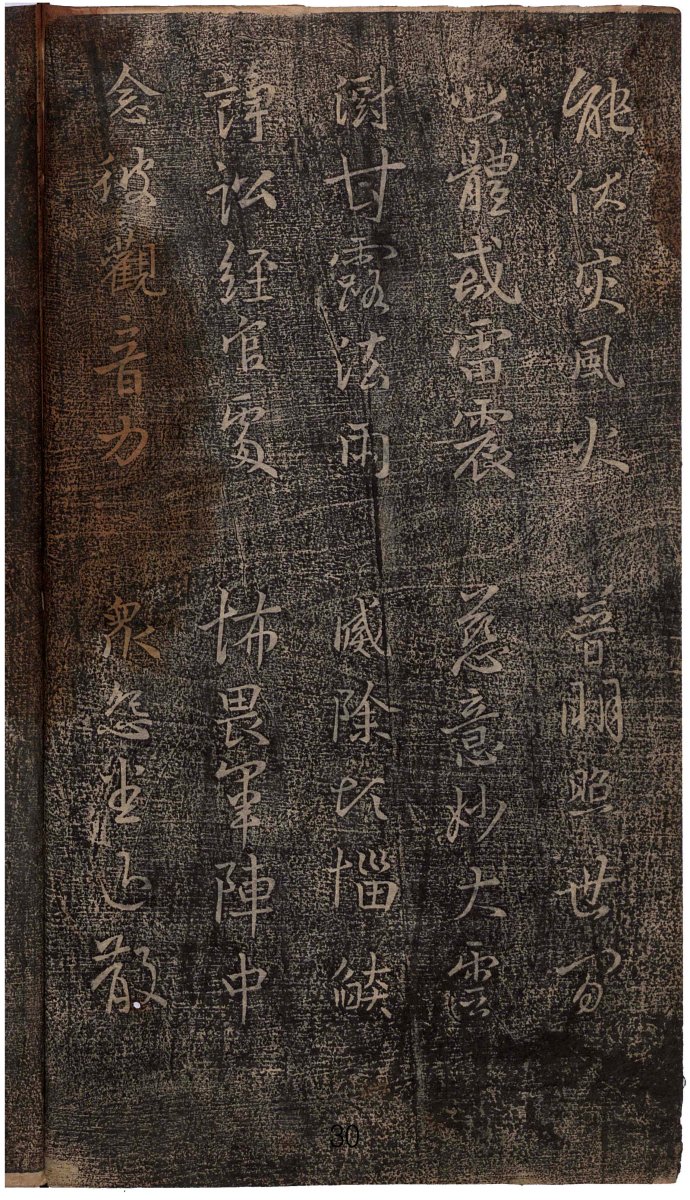 能伏灾風火 普明照世間
悲體戒雷震 慈意妙大雲
澍甘露法雨 滅除煩惱燄
諍訟經官處 怖畏軍陣中
念彼觀音力 衆怨悉退散
30